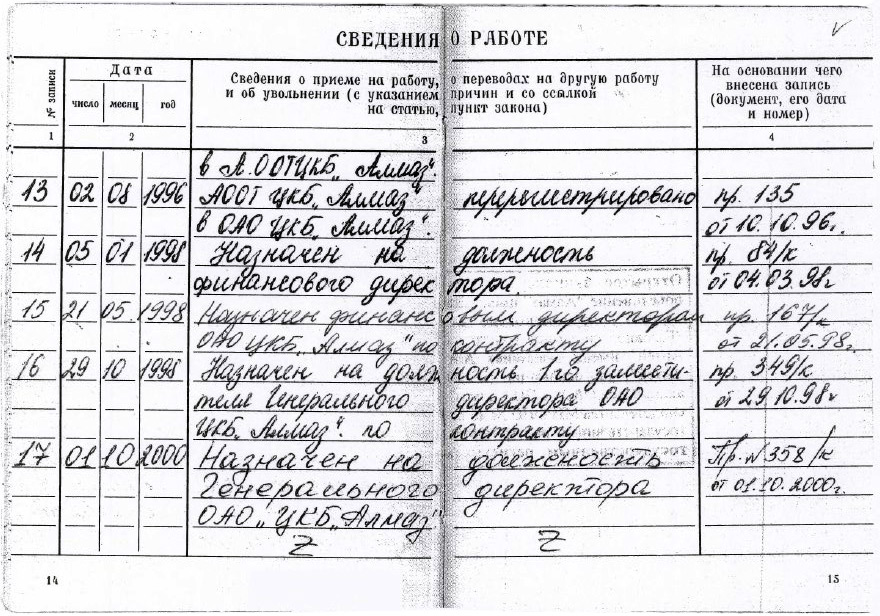 СВЕДЕНИЯ О РАБОТЕ
№ записи
Дата
число месяц год
Сведения о приеме на работу, о переводах на другую работу
и об увольнении (с указанием причин и со ссылкой
на статью, пункт закона)
На основании чего
внесена запись
(документ, его дата
и номер)
1 2 3 4
в А.ООТЦКБ „Алмаз".
13 02 08 1996 АООТ ЦКБ „Алмаз" перерегистрировано пр. 135
в ОАО ЦКБ „Алмаз". от 10.10.96г.
14 05 01 1998 Назначен на должность пр. 84/к
финансового директора. от 04.03.98г
15 21 05 1998 Назначен финансовым директором пр. 167/к
ОАО ЦКБ „Алмаз" по контракту от 21.05.98г.
16 29 10 1998 Назначен на должность 1го замести- пр. 349/к
теля Генерального директора ОАО от 29.10.98г
ЦКБ „Алмаз". по контракту
17 01 10 2000 Назначен на должность Пр. № 358/к
Генерального директора от 01.10.2000г.
ОАО „ЦКБ „Алмаз"
Z Z
14 15